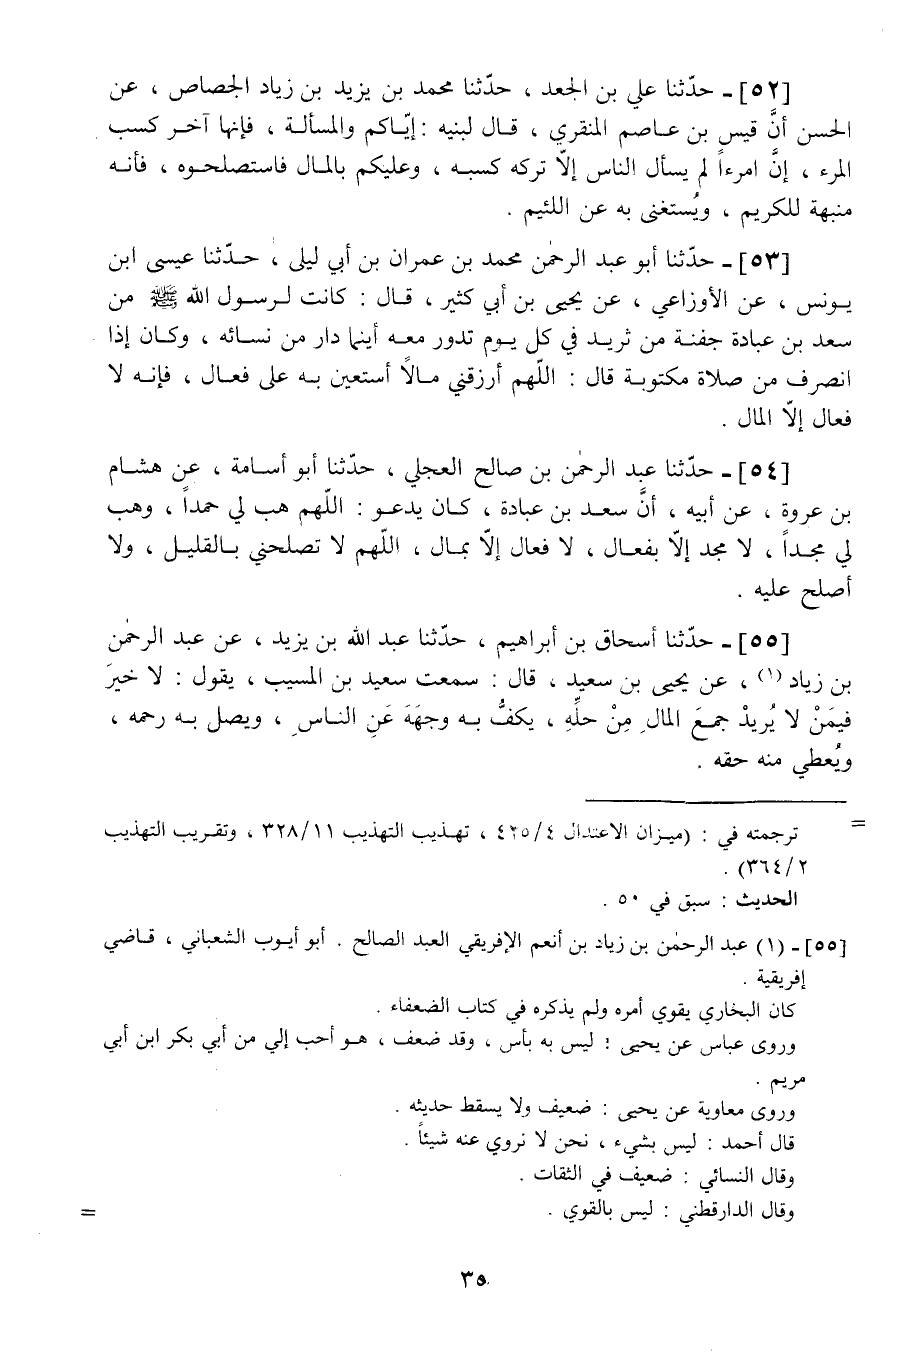 [٥٢] ـ حدّثنا علي بن الجعد ، حدّثنا محمد بن يزيد بن زياد الجصاص ، عن
الحسن أنَّ قيس بن عاصم المنقري ، قال لبنيه : إيّاكم والمسألة ، فإنها آخر كسب
المرء ، إنَّ امرءاً لم يسأل الناس إلاّ تركه كسبه ، وعليكم بالمال فاستصلحوه ، فأنه
منبهة للكريم ، ويُستغنى به عن اللئيم .
[٥٣] ـ حدّثنا أبو عبد الرحمٰن محمد بن عمران بن أبي ليلى ، حدّثنا عيسى ابن
يونس ، عن الأوزاعي ، عن يحيى بن أبي كثير ، قال : كانت لرسول الله ﷺ من
سعد بن عبادة جفنة من ثريد في كل يوم تدور معه أينما دار من نسائه ، وكان إذا
انصرف من صلاة مكتوبة قال : اللّهم أرزقني مالاً أستعين به على فعال ، فإنه لا
فعال إلاّ المال .
[٥٤] ـ حدّثنا عبد الرحمٰن بن صالح العجلي ، حدّثنا أبو أسامة ، عن هشام
بن عروة ، عن أبيه ، أنَّ سعد بن عبادة ، كان يدعو : اللّهم هب لي حمداً ، وهب
لي مجداً ، لا مجد إلاّ بفعال ، لا فعال إلاّ بمال ، اللّهم لا تصلحني بالقليل ، ولا
أصلح عليه .
[٥٥] ـ حدّثنا أسحاق بن أبراهيم ، حدّثنا عبد الله بن يزيد ، عن عبد الرحمٰن
بن زياد (١) ، عن يحيى بن سعيد ، قال : سمعت سعيد بن المسيب ، يقول : لا خيرَ
فيمَنْ لا يُريدْ جمعَ المالِ مِنْ حلِّهِ ، يكفُّ به وجهَهَ عَنِ الناسِ ، ويصل به رحمه ،
ويُعطي منه حقه .
= ترجمته في : (ميزان الاعتدال ٤/ ٤٢٥ ، تهذيب التهذيب ١١/ ٣٢٨ ، وتقريب التهذيب
٢/ ٣٦٤) .
الحديث : سبق في ٥٠ .
[٥٥] ـ (١) عبد الرحمٰن بن زياد بن أنعم الإفريقي العبد الصالح . أبو أيوب الشعباني ، قاضي
إفريقية .
كان البخاري يقوي أمره ولم يذكره في كتاب الضعفاء .
وروى عباس عن يحيى : ليس به بأس ، وقد ضعف ، هو أحب إلي من أبي بكر ابن أبي
مريم .
وروى معاوية عن يحيى : ضعيف ولا يسقط حديثه .
قال أحمد : ليس بشيء ، نحن لا نروي عنه شيئاً .
وقال النسائي : ضعيف في الثقات .
وقال الدارقطني : ليس بالقوي . =
٣٥